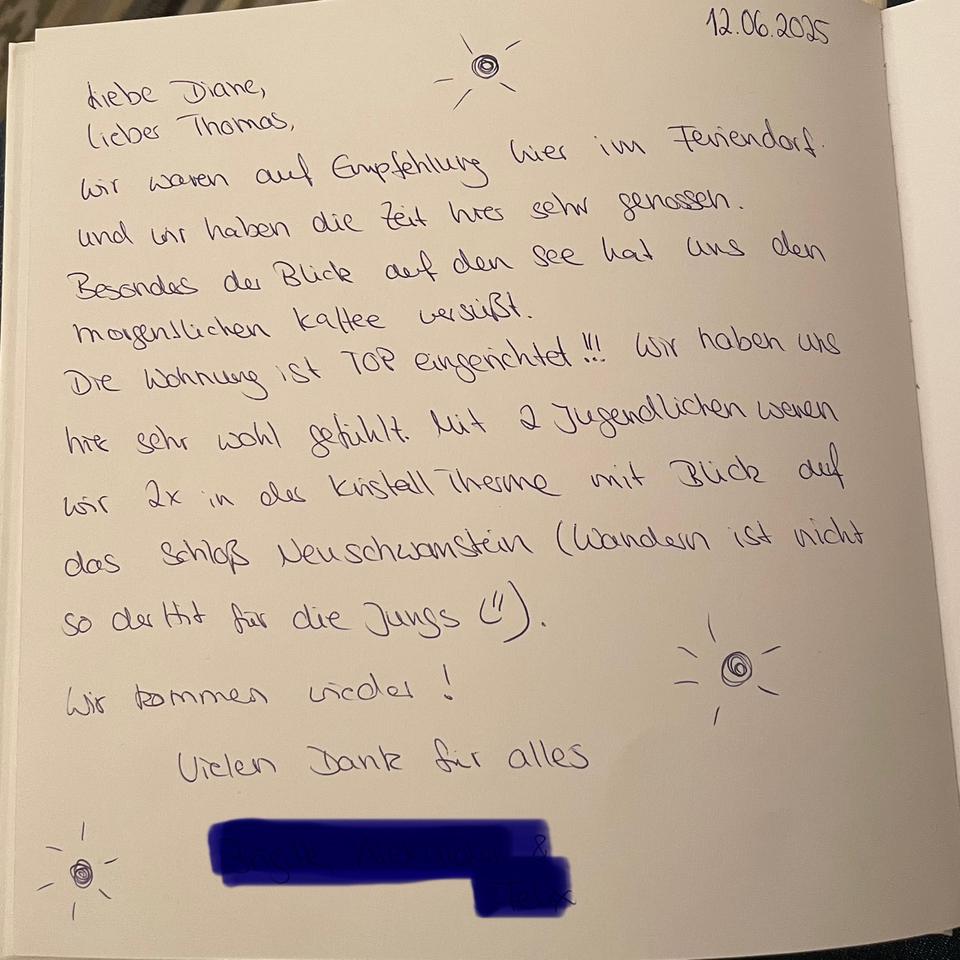 12.06.2025
Liebe Diane,
lieber Thomas,
wir waren auf Empfehlung hier im Feriendorf.
und wir haben die Zeit hier sehr genossen.
Besondes der Blick auf den See hat uns den
morgenslichen Kaffee versüßt.
Die Wohnung ist TOP eingerichtet!!! Wir haben uns
hier sehr wohl gefühlt. Mit 2 Jugendlichen waren
wir 2x in der Kristall Therme mit Blick auf
das Schloß Neuschwanstein (Wandern ist nicht
so der Hit für die Jungs).
Wir kommen wieder!
Vielen Dank für alles
&